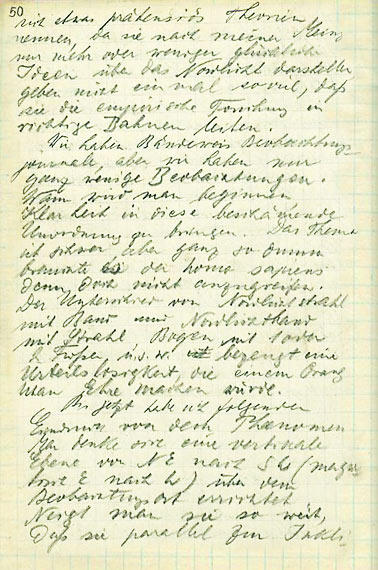 50
wir etwas prätensiös Theorien
nennen, da sie nach meiner Meinung
nur mehr oder weniger glückliche
Ideen über das Nordlicht darstellen
geben nicht einmal soviel, daß
sie die empirische Forschung in
richtige Bahnen leiten.
Wir haben Bändeweis Beobachtungs
journale, aber wir haben nur
ganz wenige Beobachtungen.
Wann wird man beginnen
Klarheit in diese beschämende
Unordnung zu bringen. Das Thema
ist schwer, aber ganz so dumm
brauchte es da homo sapiens
denn doch nicht anzugreifen.
Der Unterschied von Nordlichtstrahl
mit Band und Nordlichtband
mit Strahl Bogen mit 1 oder
2 Füßen u.s.w. bezeugt eine
Urteilslosigkeit, die einem Orang
Utan Ehre machen würde.
Bis jetzt habe ich folgenden
Eindruck von dem Phänomen
Ich denke mir eine vertikale
Ebene von NE nach SW
E nach W) über dem
Beobachtungsort errichtet
Neigt man sie so weit,
daß sie parallel zur Inkli-